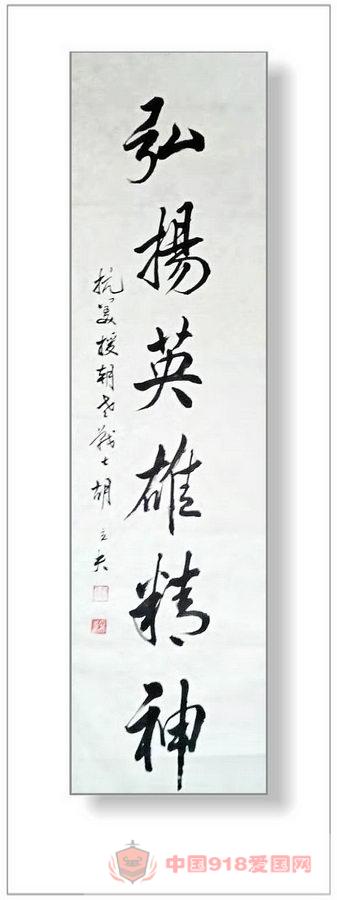 弘揚英雄精神
抗美援朝老战士胡立夫
中国918爱国网